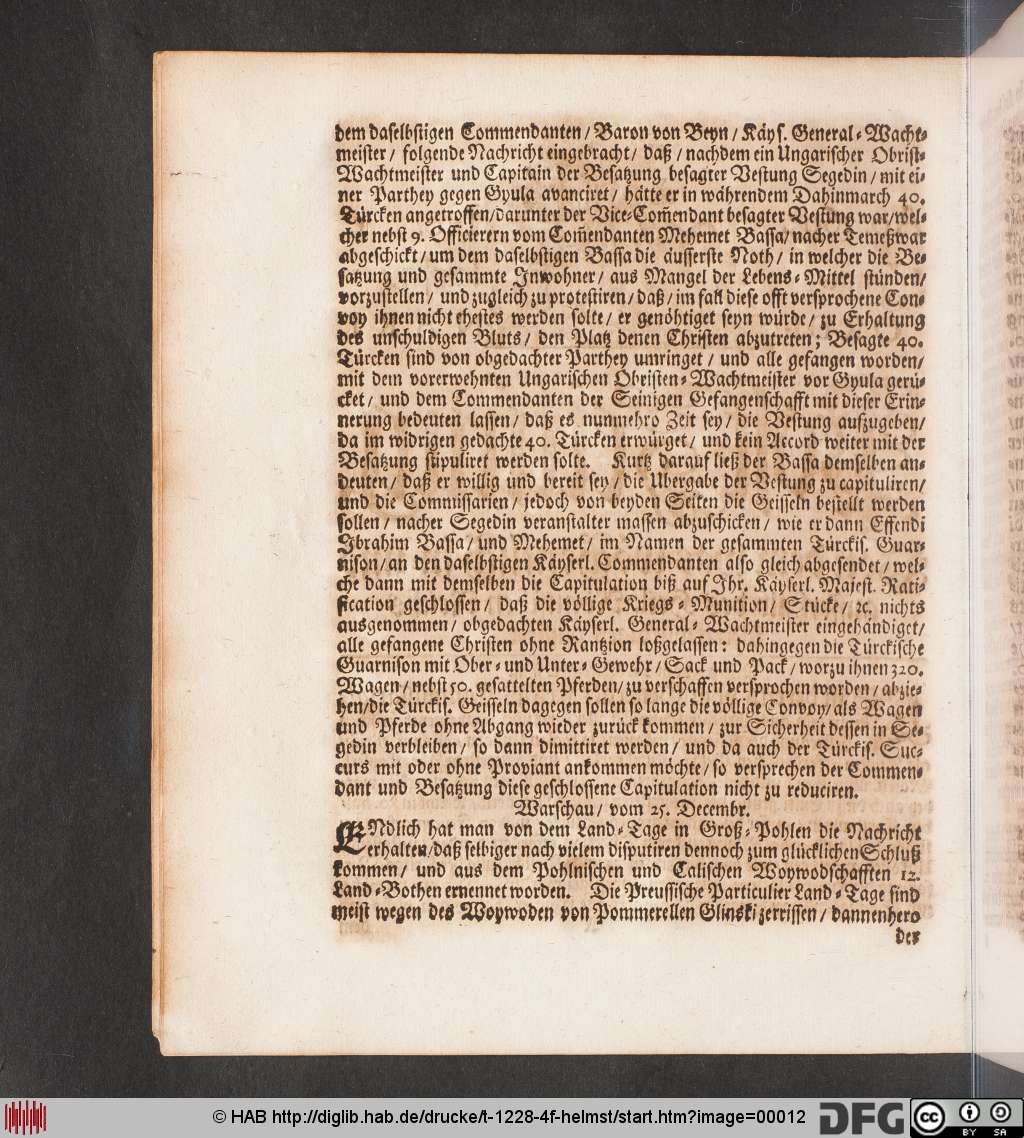 dem daselbstigen Commendanten / Baron von Beyn / Käys. General-Wacht-
meister / folgende Nachricht eingebracht / daß / nachdem ein Ungarischer Obrist-
Wachtmeister und Capitain der Besatzung besagter Vestung Segedin / mit ei-
ner Parthey gegen Gyula avanciret / hätte er in währendem Dahinmarch 40.
Türcken angetroffen/darunter der Vice-Com̃endant besagter Vestung war/wel-
cher nebst 9. Officierern vom Com̃endanten Mehemet Bassa/ nacher Temeßwar
abgeschickt/ um dem daselbstigen Bassa die äusserste Noth / in welcher die Be-
satzung und gesammte Inwohner / aus Mangel der Lebens-Mittel stünden/
vorzustellen / und zugleich zu protestiren / daß / im fall diese offt versprochene Con-
voy ihnen nicht ehestes werden solte / er genöhtiget seyn würde / zu Erhaltung
des unschuldigen Bluts / den Platz denen Christen abzutreten; Besagte 40.
Türcken sind von obgedachter Parthey umringet / und alle gefangen worden/
mit dem vorerwehnten Ungarischen Obristen-Wachtmeister vor Gyula gerü-
cket / und dem Commendanten der Seinigen Gefangenschafft mit dieser Erin-
nerung bedeuten lassen / daß es nunmehro Zeit sey / die Vestung aufzugeben/
da im widrigen gedachte 40. Türcken erwürget / und kein Accord weiter mit der
Besatzung stipuliret werden solte. Kurtz darauf ließ der Bassa demselben an-
deuten / daß er willig und bereit sey / die Ubergabe der Vestung zu capituliren/
und die Commissarien / jedoch von beyden Seiten die Geisseln bestellt werden
sollen / nacher Segedin veranstalter massen abzuschicken / wie er dann Effendi
Ibrahim Bassa / und Mehemet / im Namen der gesammten Türckis. Guar-
nison / an den daselbstigen Käyserl. Commendanten also gleich abgesendet / wel-
che dann mit demselben die Capitulation biß auf Ihr. Käyserl. Majest. Rati-
fication geschlossen / daß die völlige Kriegs-Munition / Stücke / ꝛc. nichts
ausgenommen / obgedachten Käyserl. General-Wachtmeister eingehändiget/
alle gefangene Christen ohne Rantzion loßgelassen: dahingegen die Türckische
Guarnison mit Ober- und Unter-Gewehr / Sack und Pack / worzu ihnen 320.
Wagen / nebst 50. gesattelten Pferden / zu verschaffen versprochen worden / abzie-
hen/die Türckis. Geisseln dagegen sollen so lange die völlige Convoy/ als Wagen
und Pferde ohne Abgang wieder zurück kommen / zur Sicherheit dessen in Se-
gedin verbleiben / so dann dimittiret werden / und da auch der Türckis. Suc-
curs mit oder ohne Proviant ankommen möchte / so versprechen der Commen-
dant und Besatzung diese geschlossene Capitulation nicht zu reduciren.
Warschau / vom 25. Decembr.
ENdlich hat man von dem Land-Tage in Groß-Pohlen die Nachricht
erhalten/daß selbiger nach vielem disputiren dennoch zum glücklichen Schluß
kommen / und aus dem Pohlnischen und Calischen Woywodschafften 12.
Land-Bothen ernennet worden. Die Preussische Particulier Land-Tage sind
meist wegen des Woywoden von Pommerellen Glinski zerrissen / dannenhero
der
© HAB http://diglib.hab.de/drucke/t-1228-4f-helmst/start.htm?image=00012
DFG
cc BY SA